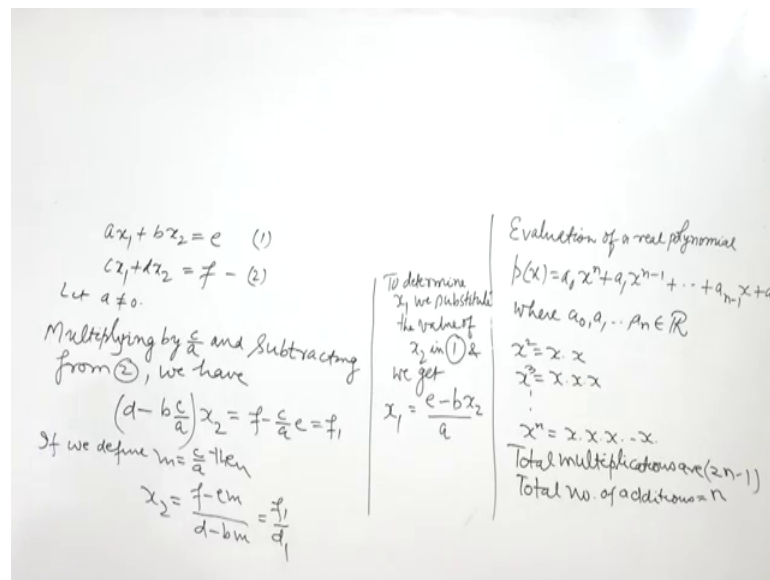 ax₁ + bx₂ = e (1)
cx₁ + dx₂ = f - (2)
Let a ≠ 0.
Multiplying by c/a and Subtracting
from ②, we have
(d - b c/a) x₂ = f - c/a e = f₁
If we define m = c/a then
x₂ = f-em/d-bm = f₁/d₁
To determine
x₁ we substitute
the value of
x₂ in ① &
we get
x₁ = e-bx₂/a
Evaluation of a real polynomial
p(x) = a₀xⁿ + a₁xⁿ⁻¹ + ... + aₙ₋₁x + a
where a₀, a₁ .. aₙ ∈ ℝ
x² = x.x
x³ = x.x.x
⋮
xⁿ = x.x.x...x.
Total multiplications are (2n-1)
Total no. of additions = n